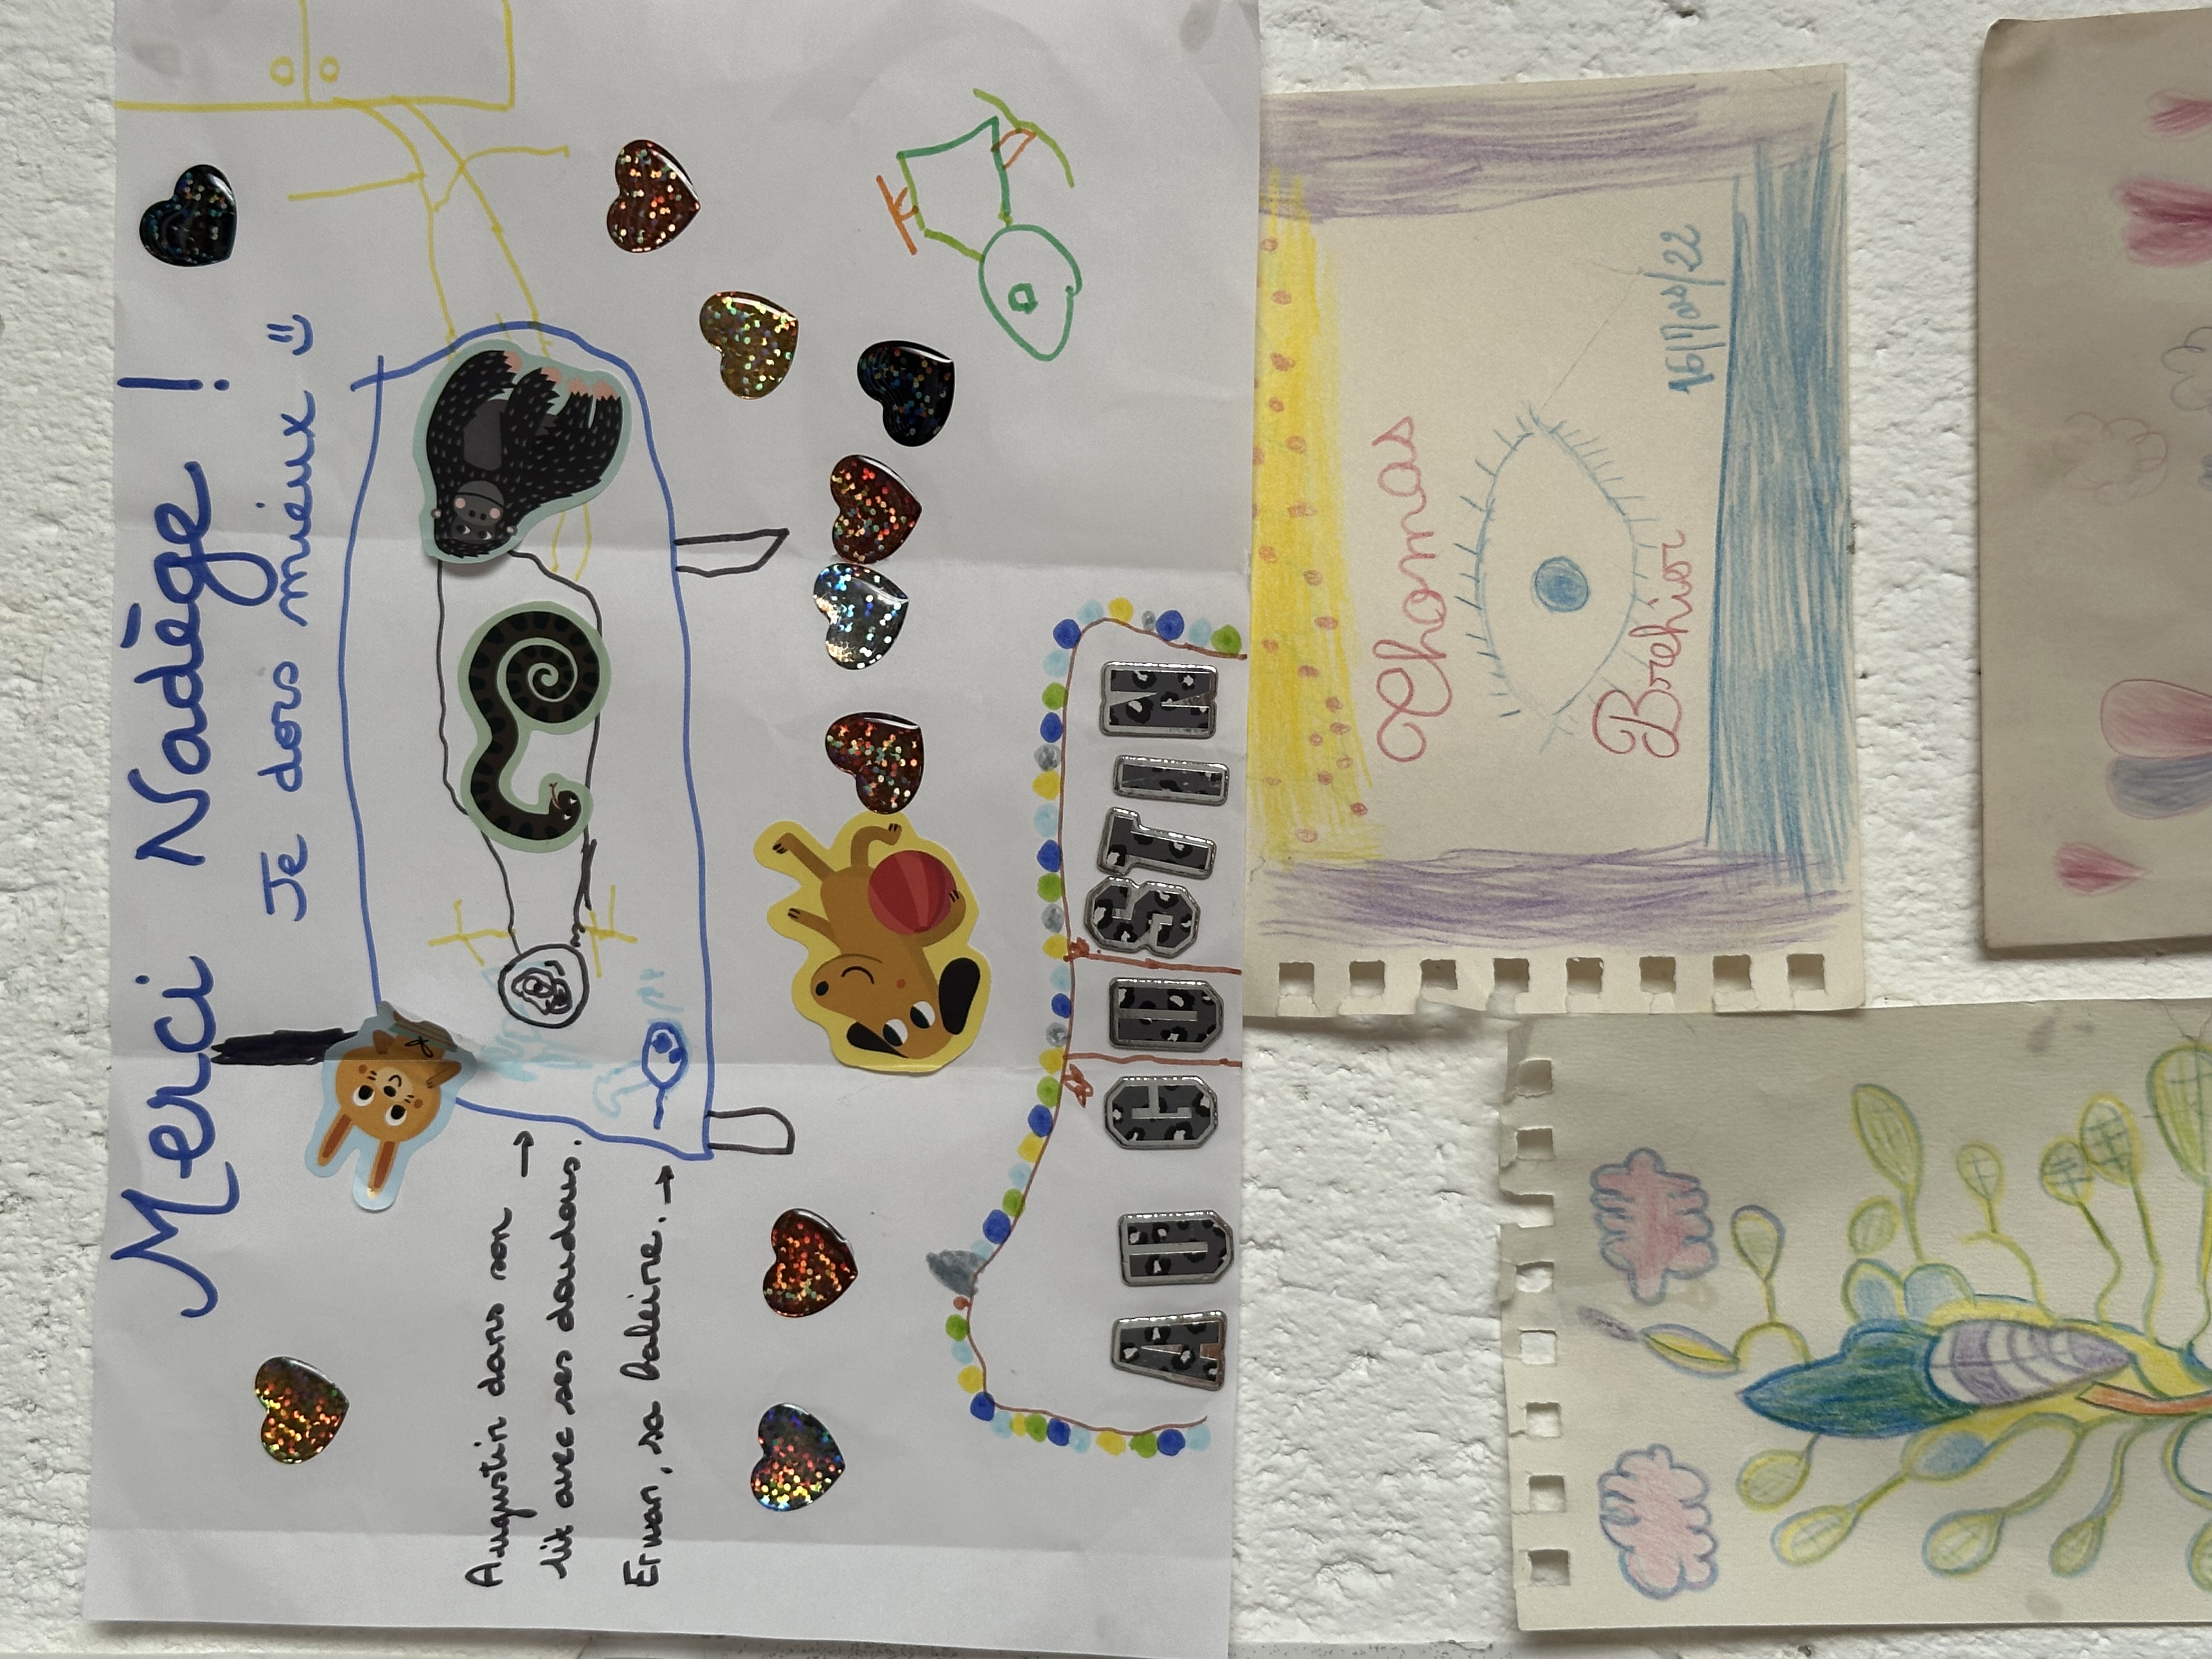 Merci Nadège !
Je dors mieux
Augustin dans son
lit avec ses doudous.
Erwan, sa baleine.
AUGUSTIN
Thomas
Brehier
16/Mars/22